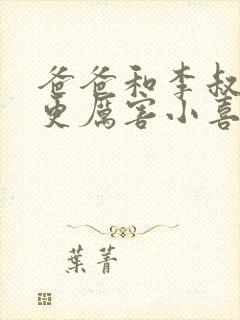 爸爸和李叔
更厲害小喜
葉菁